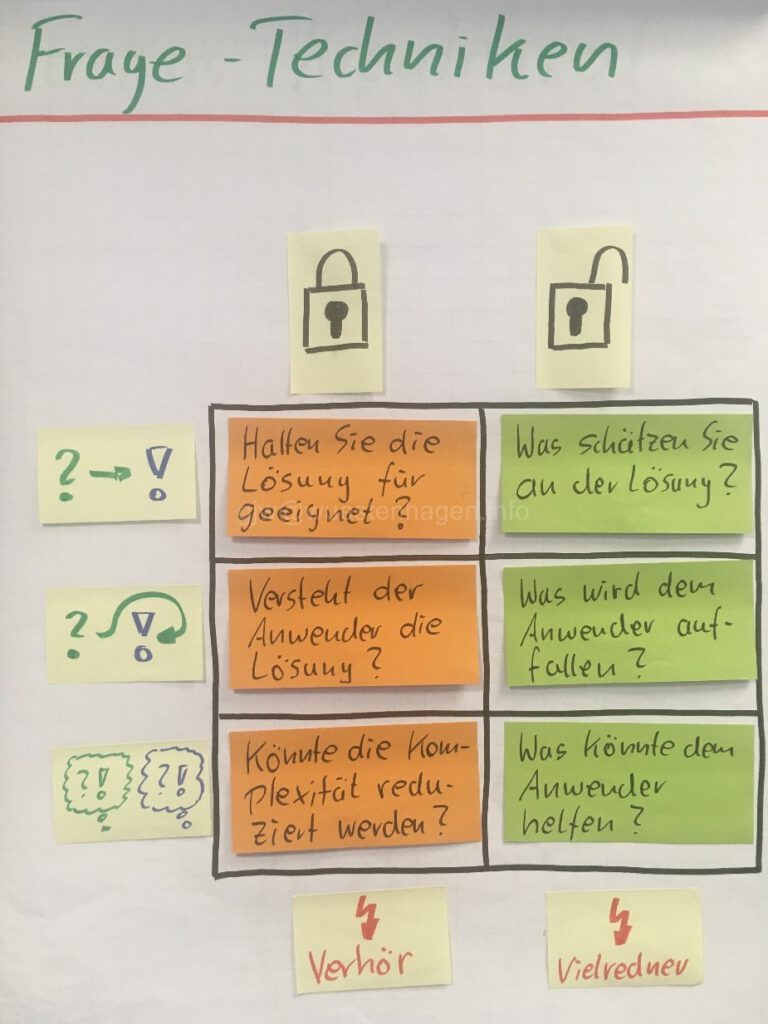 Frage - Techniken
? → !
Halten Sie die
Lösung für
geeignet ?
Was schätzen Sie
an der Lösung ?
? !
Versteht der
Anwender die
Lösung ?
Was wird dem
Anwender auf-
fallen ?
?! ?!
Könnte die Kom-
plexität redu-
ziert werden ?
Was könnte dem
Anwender
helfen ?
Verhör
Vielredner